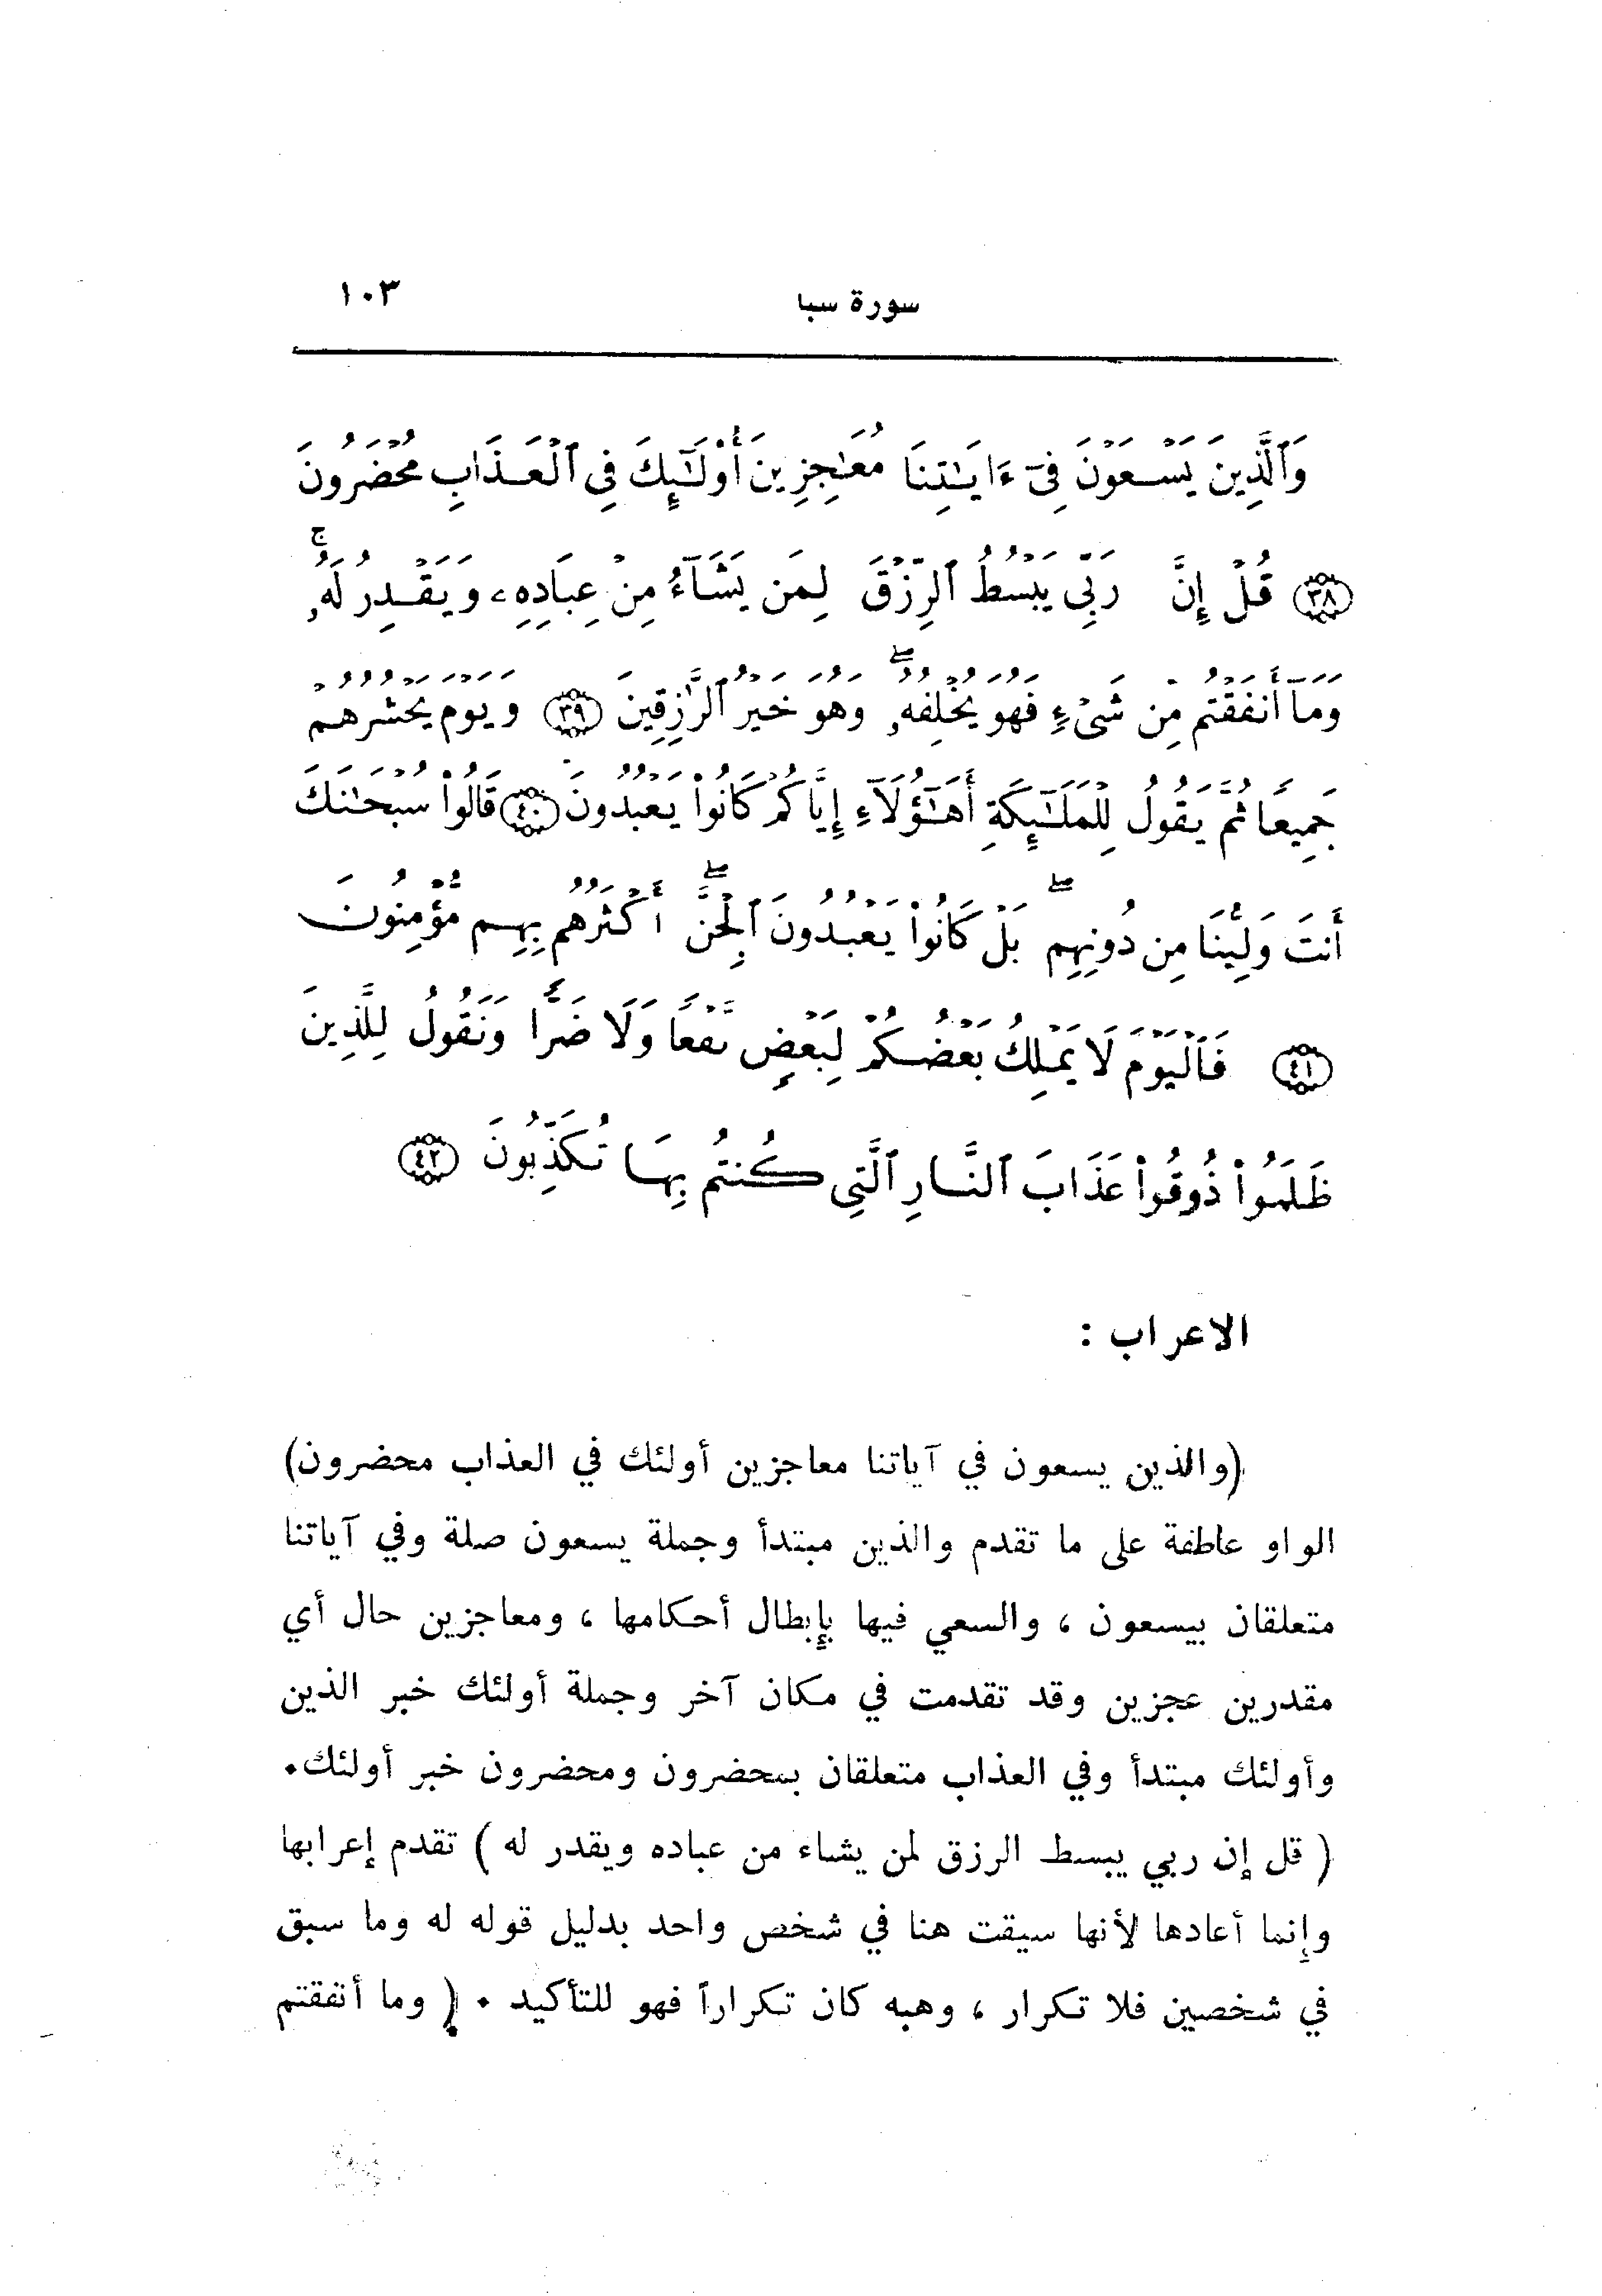 سورة سبا ١٠٣
وَٱلَّذِينَ يَسْعَوْنَ فِىٓ ءَايَٰتِنَا مُعَٰجِزِينَ أُوْلَٰٓئِكَ فِى ٱلْعَذَابِ مُحْضَرُونَ
٣٨ قُلْ إِنَّ رَبِّى يَبْسُطُ ٱلرِّزْقَ لِمَن يَشَآءُ مِنْ عِبَادِهِۦ وَيَقْدِرُ لَهُۥ ۚ
وَمَآ أَنفَقْتُم مِّن شَىْءٍ فَهُوَ يُخْلِفُهُۥ ۖ وَهُوَ خَيْرُ ٱلرَّٰزِقِينَ ٣٩ وَيَوْمَ يَحْشُرُهُمْ
جَمِيعًا ثُمَّ يَقُولُ لِلْمَلَٰٓئِكَةِ أَهَٰٓؤُلَآءِ إِيَّاكُمْ كَانُوا۟ يَعْبُدُونَ ٤٠ قَالُوا۟ سُبْحَٰنَكَ
أَنتَ وَلِيُّنَا مِن دُونِهِم ۖ بَلْ كَانُوا۟ يَعْبُدُونَ ٱلْجِنَّ ۖ أَكْثَرُهُم بِهِم مُّؤْمِنُونَ
٤١ فَٱلْيَوْمَ لَا يَمْلِكُ بَعْضُكُمْ لِبَعْضٍ نَّفْعًا وَلَا ضَرًّا وَنَقُولُ لِلَّذِينَ
ظَلَمُوا۟ ذُوقُوا۟ عَذَابَ ٱلنَّارِ ٱلَّتِى كُنتُم بِهَا تُكَذِّبُونَ ٤٢
الاعراب :
(والذين يسعون في آياتنا معاجزين أولئك في العذاب محضرون)
الواو عاطفة على ما تقدم والذين مبتدأ وجملة يسعون صلة وفي آياتنا
متعلقان بيسعون ، والسعي فيها بإبطال أحكامها ، ومعاجزين حال أي
مقدرين عجزين وقد تقدمت في مكان آخر وجملة أولئك خبر الذين
وأولئك مبتدأ وفي العذاب متعلقان بمحضرون ومحضرون خبر أولئك.
( قل إن ربي يبسط الرزق لمن يشاء من عباده ويقدر له ) تقدم إعرابها
وإنما أعادها لأنها سيقت هنا في شخص واحد بدليل قوله له وما سبق
في شخصين فلا تكرار ، وهبه كان تكراراً فهو للتأكيد . ( وما أنفقتم